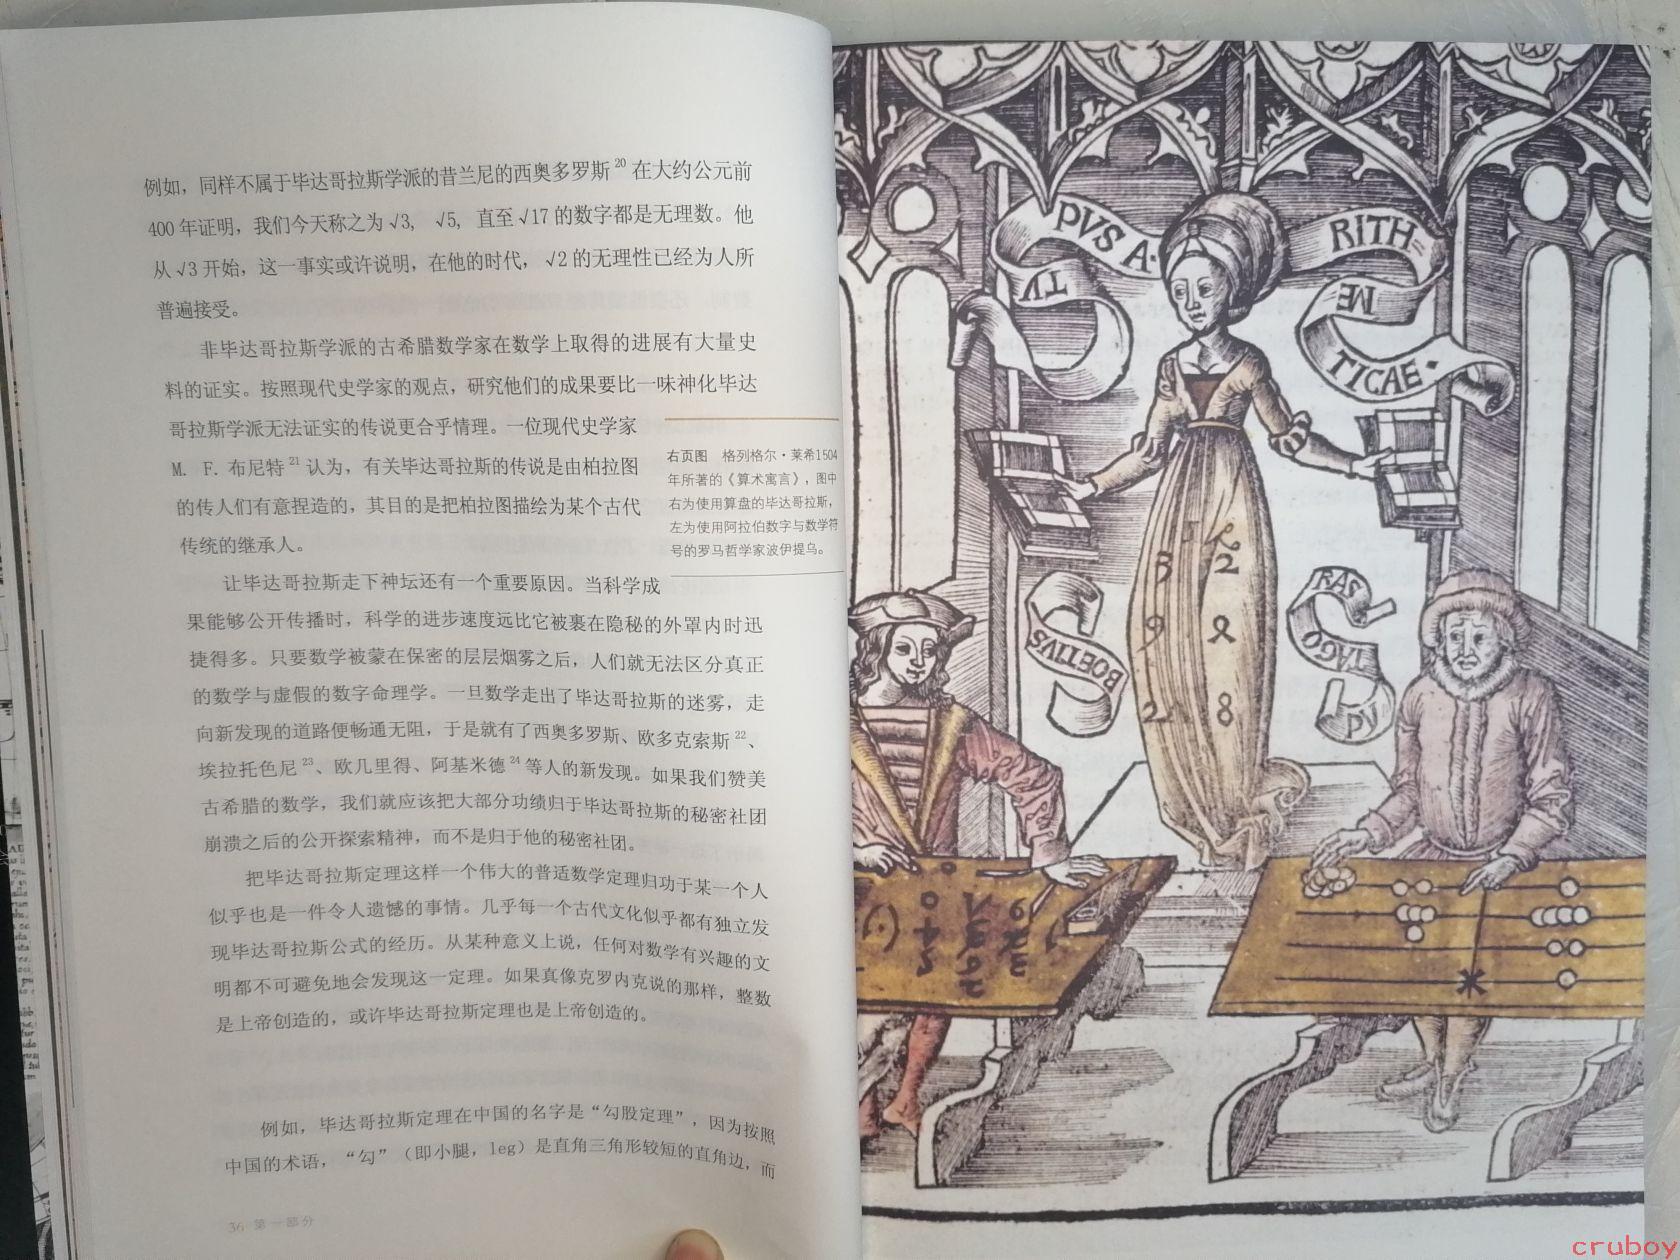 例如，同样不属于毕达哥拉斯学派的昔兰尼的西奥多罗斯20在大约公元前
400年证明，我们今天称之为√3，√5，直至√17的数字都是无理数。他
从√3开始，这一事实或许说明，在他的时代，√2的无理性已经为人所
普遍接受。
非毕达哥拉斯学派的古希腊数学家在数学上取得的进展有大量史
料的证实。按照现代史学家的观点，研究他们的成果要比一味神化毕达
哥拉斯学派无法证实的传说更合乎情理。一位现代史学家
M. F. 布尼特21认为，有关毕达哥拉斯的传说是由柏拉图
的传人们有意捏造的，其目的是把柏拉图描绘为某个古代
传统的继承人。
右页图 格列格尔·莱希1504
年所著的《算术寓言》，图中
右为使用算盘的毕达哥拉斯，
左为使用阿拉伯数字与数学符
号的罗马哲学家波伊提乌。
让毕达哥拉斯走下神坛还有一个重要原因。当科学成
果能够公开传播时，科学的进步速度远比它被裹在隐秘的外罩内时迅
捷得多。只要数学被蒙在保密的层层烟雾之后，人们就无法区分真正
的数学与虚假的数字命理学。一旦数学走出了毕达哥拉斯的迷雾，走
向新发现的道路便畅通无阻，于是就有了西奥多罗斯、欧多克索斯22、
埃拉托色尼23、欧几里得、阿基米德24等人的新发现。如果我们赞美
古希腊的数学，我们就应该把大部分功绩归于毕达哥拉斯的秘密社团
崩溃之后的公开探索精神，而不是归于他的秘密社团。
把毕达哥拉斯定理这样一个伟大的普适数学定理归功于某一个人
似乎也是一件令人遗憾的事情。几乎每一个古代文化似乎都有独立发
现毕达哥拉斯公式的经历。从某种意义上说，任何对数学有兴趣的文
明都不可避免地会发现这一定理。如果真像克罗内克说的那样，整数
是上帝创造的，或许毕达哥拉斯定理也是上帝创造的。
例如，毕达哥拉斯定理在中国的名字是“勾股定理”，因为按照
中国的术语，“勾”（即小腿，leg）是直角三角形较短的直角边，而
36 第一部分
TV
PVS A·
RITH=
ME
TICAE·
BOETIVS
PV
TAGO
RAS
3 2
9
8
cruboy